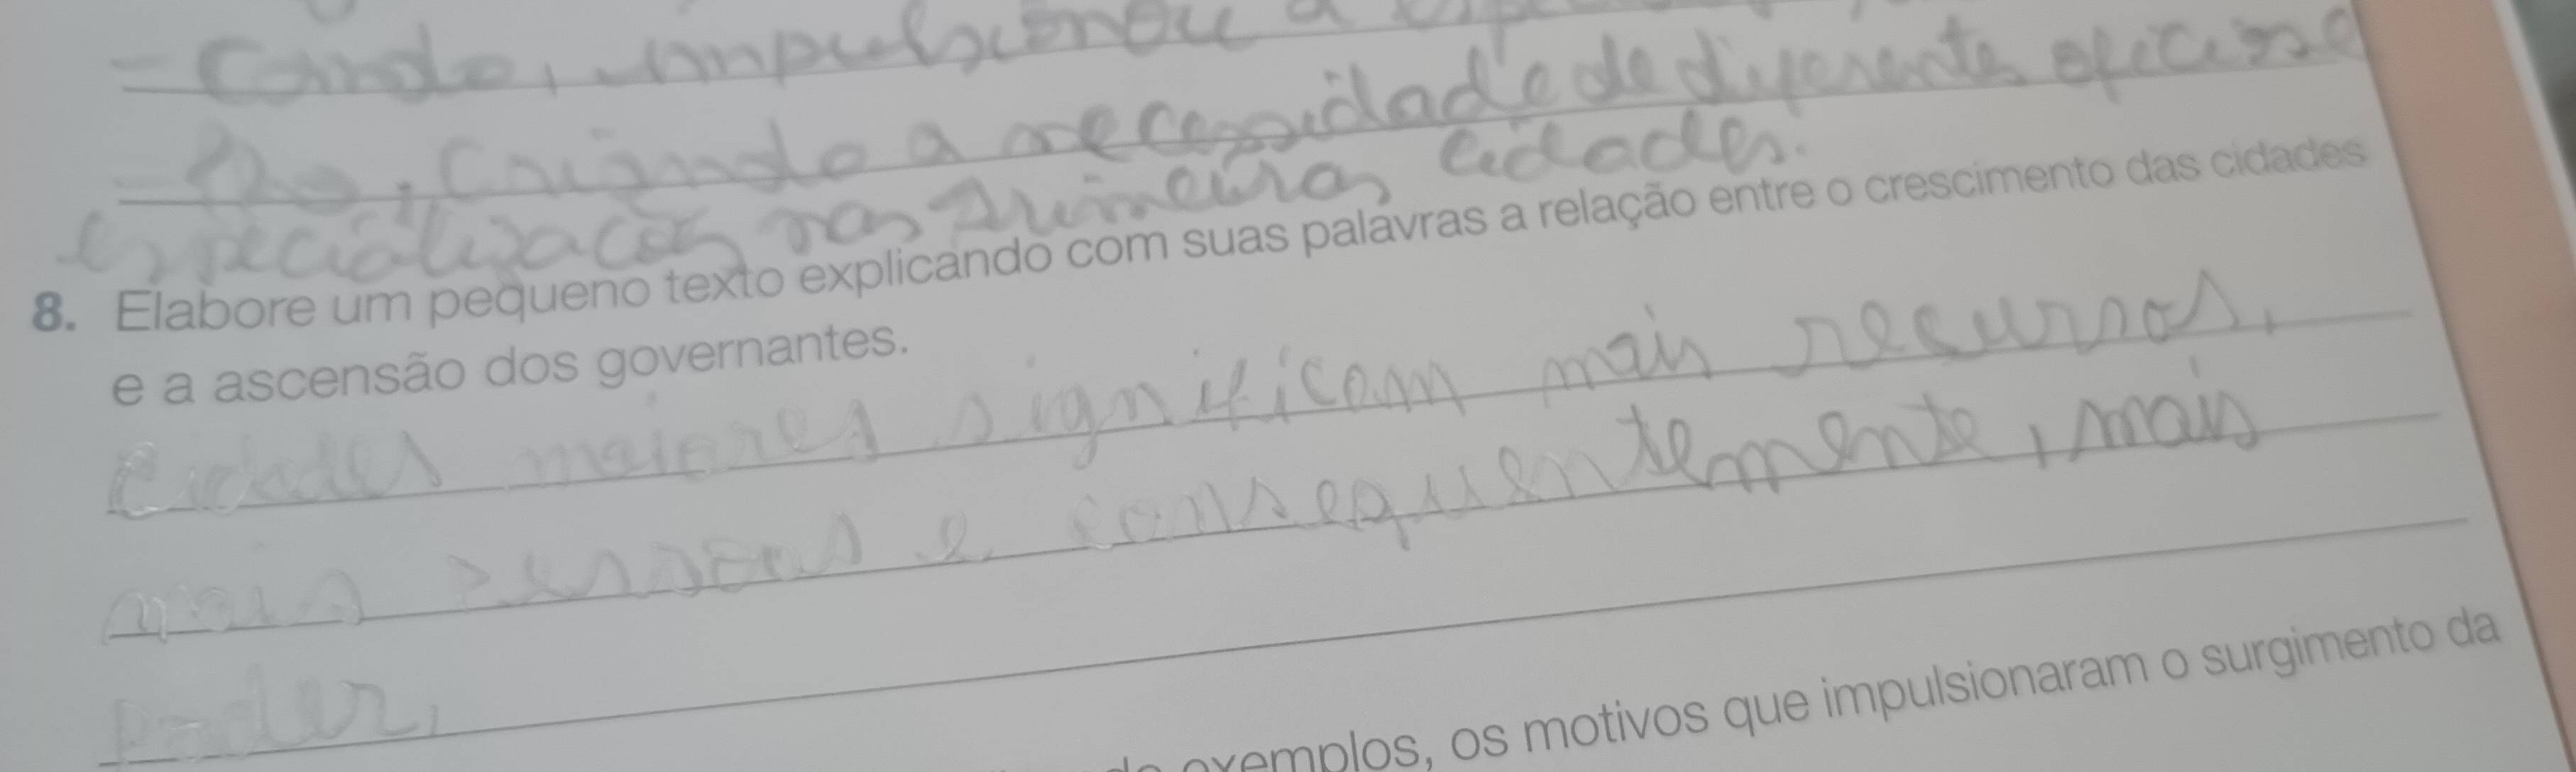 cando, impulsionou a
ção, criando a necessidade de diferentes
especializações nas primeiras cidades.
8. Elabore um pequeno texto explicando com suas palavras a relação entre o crescimento das cidades
e a ascensão dos governantes.
Cidades maiores significam mais recursos,
mais pessoas e consequentemente, mais
poder,
exemplos, os motivos que impulsionaram o surgimento da